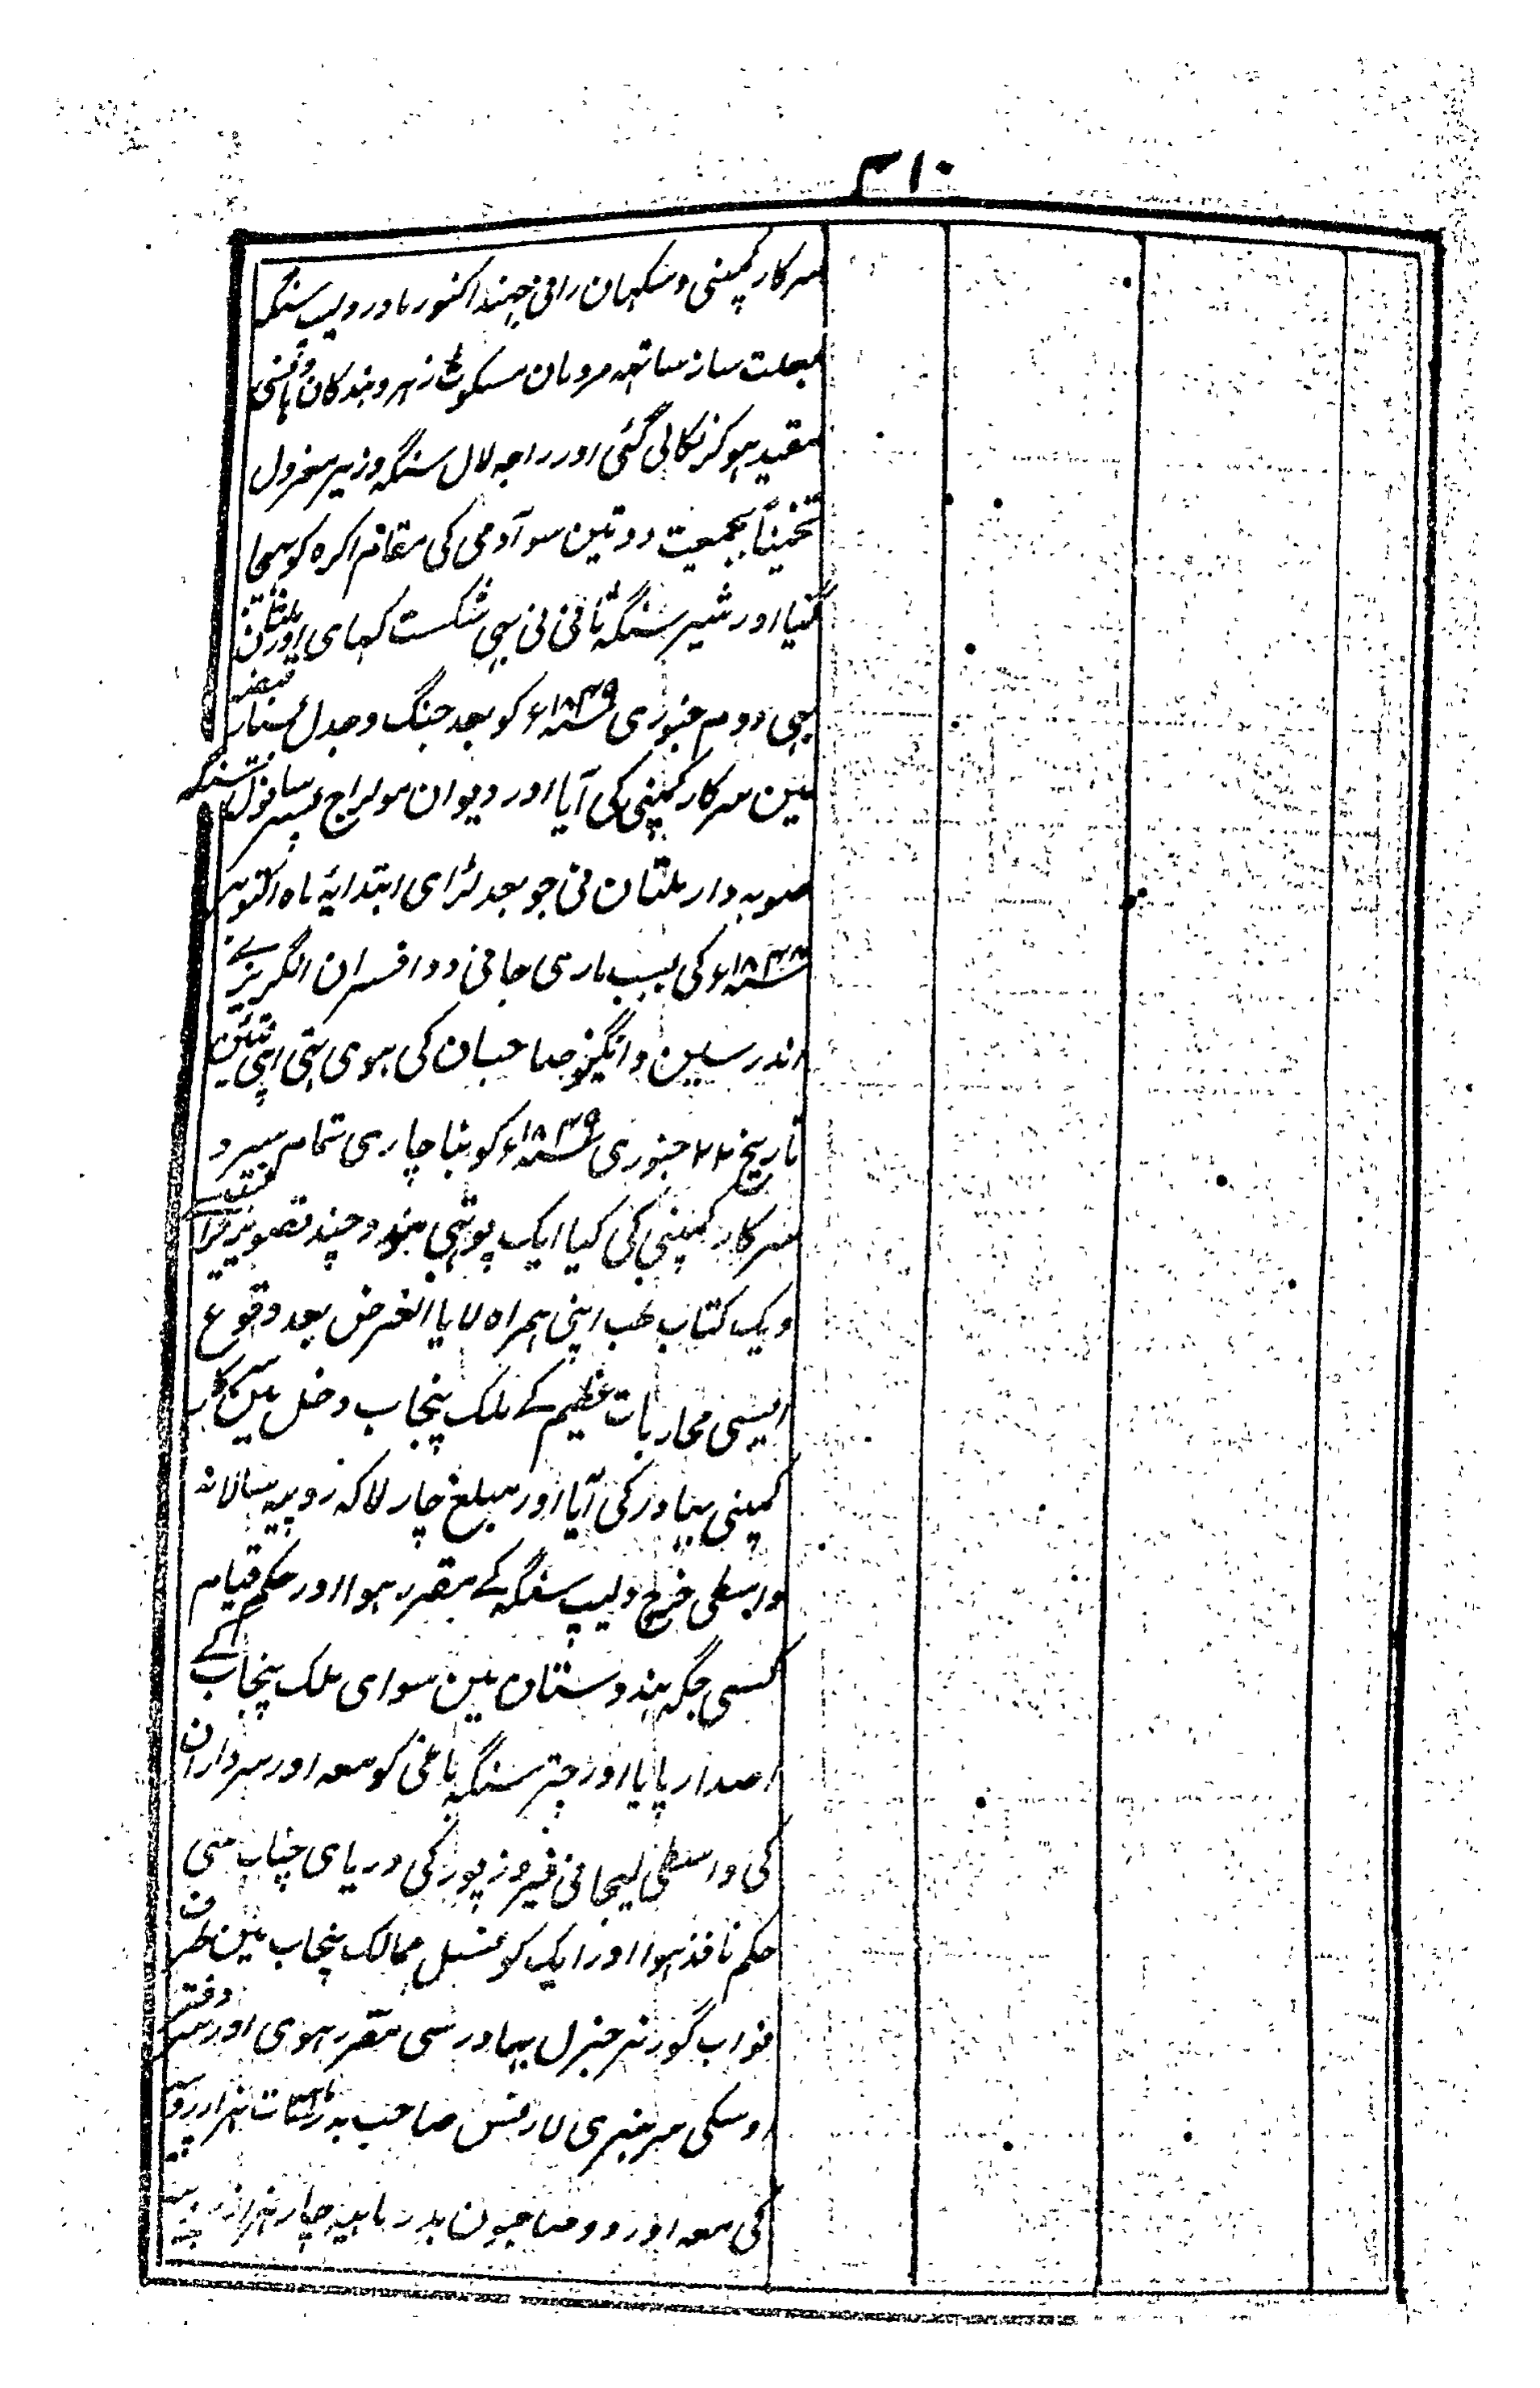 ۳۱۰
سرکار کمپنی و سکہان رانی چہندا کنور مادر دلیپ سنگہ
بعلت ساز ساتہہ مردمان مسکوٹ زہر و بندکان ہانسی
مقید ہوکر نکالی گئی اور راجہ لال سنگہ وزیر معزول
تخمیناً بجمیعت دو تین سو آدمی کی مقام اکرہ کو بہیجا
گیا اور شیر سنگہ ثانی نی بہی شکست کہای اور ملتان
بہی دوم جنوری ۱۸۴۹ء کو بعد جنگ و جدل بسیار قبضہ
مین سرکار کمپنی کی آیا اور دیوان مولراج پسر ساون سنگہ
صوبہ دار ملتان نی جو بعد لڑای ابتدایٔہ ماہ اکتوبر
۱۸۴۸ء کی بسبب ماری جانی دو افسران انگریزے
اندرسین و انگیو صاحبان کی ہوی تہی اپنی تئین
تاریخ ۲۲ جنوری ۱۸۴۹ء کو بناچاری تمام سپرد
سرکار کمپنی کی کیا ایک پوتہی ہنود و چند تصویرین
ویک کتاب طب اپنی ہمراہ لایا الغرض بعد وقوع
ایسی محاربات عظیم کے ملک پنجاب دخل مین سرکار
کمپنی بہادر کی آیا اور مبلغ چار لاکہ روپیہ سالانہ
واسطی خرچ دلیپ سنگہ کے مقرر ہوا اور حکم قیام
کسی جگہ ہندوستان مین سوای ملک پنجاب کے
اصدار پایا اور چتر سنگہ باغی کو معہ اور سرداران
کی واسطی لیجانی فیروزپور کی دریای چناب سی
حکم نافذ ہوا اور ایک کونسل ممالک پنجاب مین طرف
نواب گورنر جنرل بہادر سی مقرر ہوی اور سر دفتر
اوسکی سر ہنری لارنس صاحب بدرماہہ سات ہزار روپیہ
کی معہ اور دو صاحبون بدرماہیہ چار ہزار روپیہ